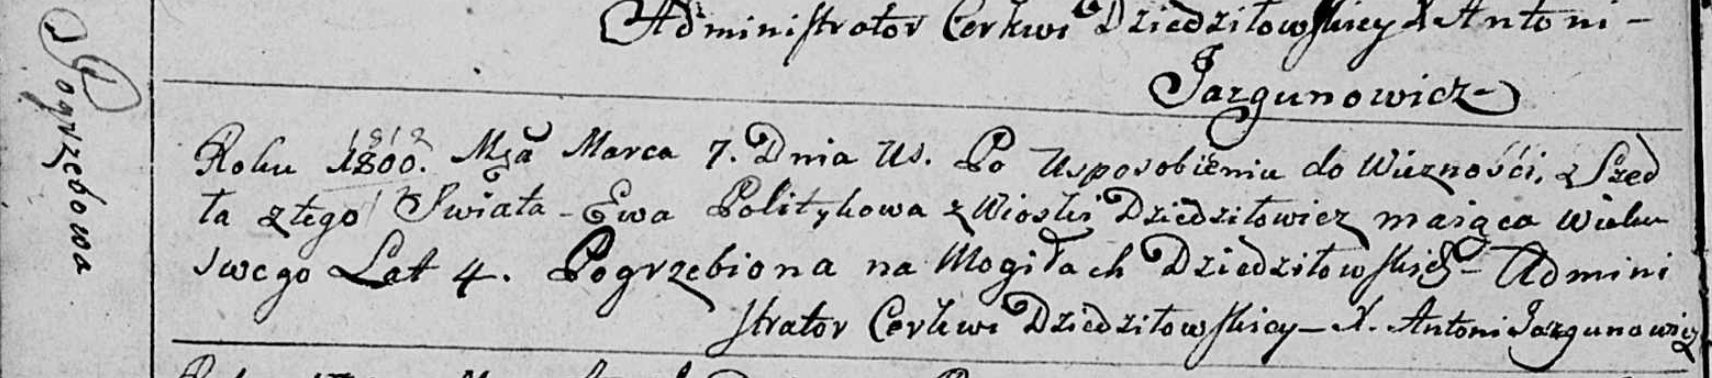 Administrator Cerkwi Dziedziłowskiey X Antoni-
Jazgunowicz
Pogrzebowa
Roku 1800. 1812 Mca Marca 7. Dnia Us. Po Usposobieniu do Wieznośći, z Szed
ła z tego Swiata - Ewa Politykowa z Wioski Dziedziłowicz maiąca Wieku
swego Lat 4. Pogrzebiona na Mogiłach Dziedziłowskich - Admini
strator Cerkwi Dziedziłowskiey - X. Antoni Jazgunowicz